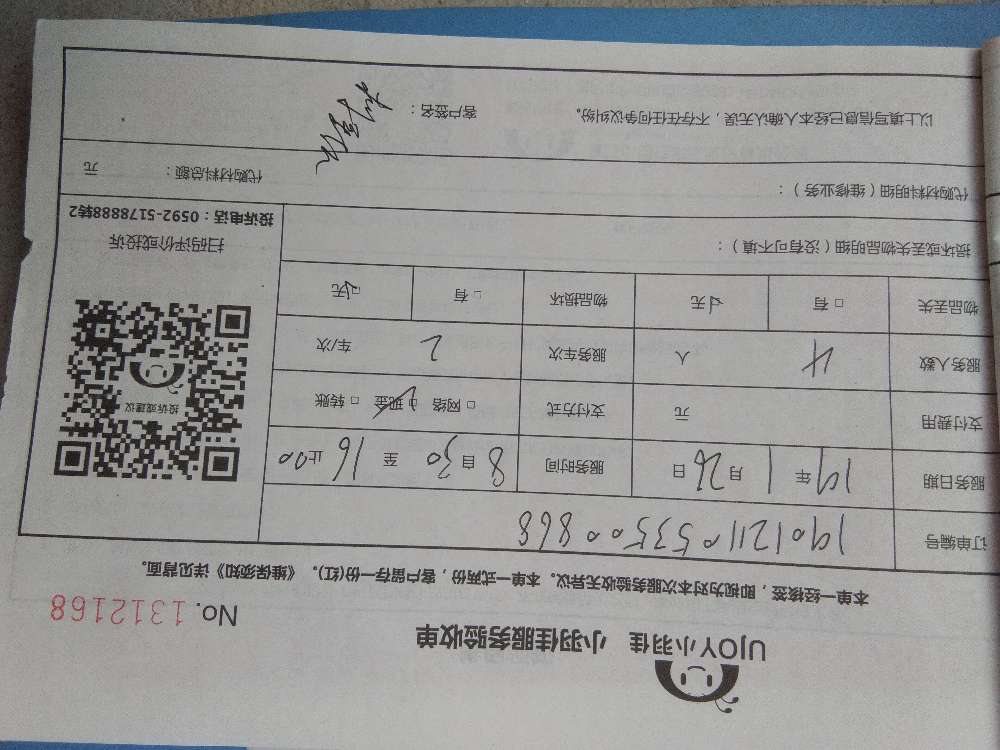 UJOY小羽佳 小羽佳服务验收单
No. 1312168
本单一经核签，即视为对本次服务验收无异议。本单一式两份，客户留存一份(红)。《维保须知》详见背面。
订单编号 1901211053500868
服务日期 19年 1月26日 服务时间 8 自 30 至 16 止00
支付费用 元 支付方式 □ 网络 ☑ 现金 □ 转账
服务人数 4 人 服务车次 2 车/次
物品丢失 □ 有 ☑无 物品损坏 □ 有 ☑无
损坏或丢失物品明细（没有可不填）：
代购材料明细（维修业务）： 代购材料总额： 元
以上填写信息已经本人确认无误，不存在任何争议纠纷。 客户签名：
投诉或建议
扫码评价或投诉
投诉电话：0592-5178888转2